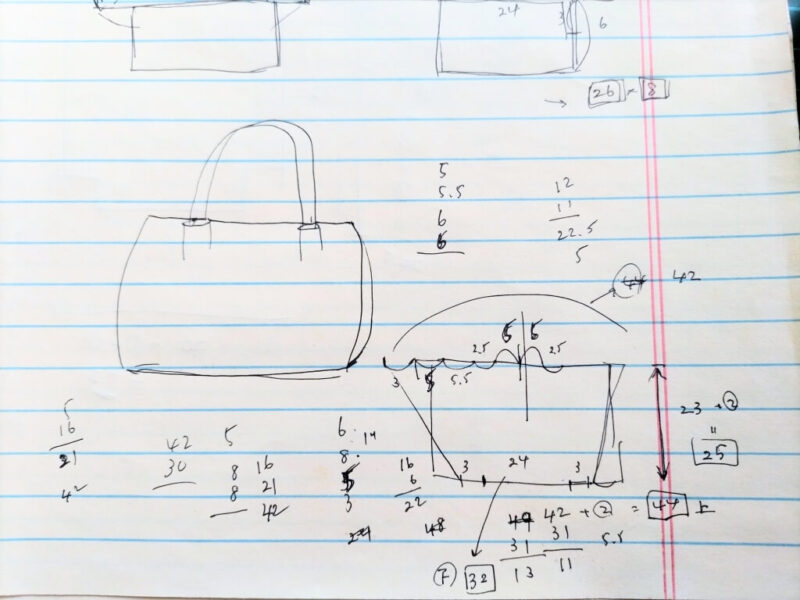 24 3 6
→ 26 × 8
5
5.5
6
6
12
11
22.5
5
44 42
2.5 5 5 2.5
3 5 5.5
23 + ②
"
25
3 24 3
42 + ② = 44
5
16
21
42
42
30
5
8 16
8 21
42
6
8
5
3
14
16
6
22
48
31
13
42
31
11
5.5
32